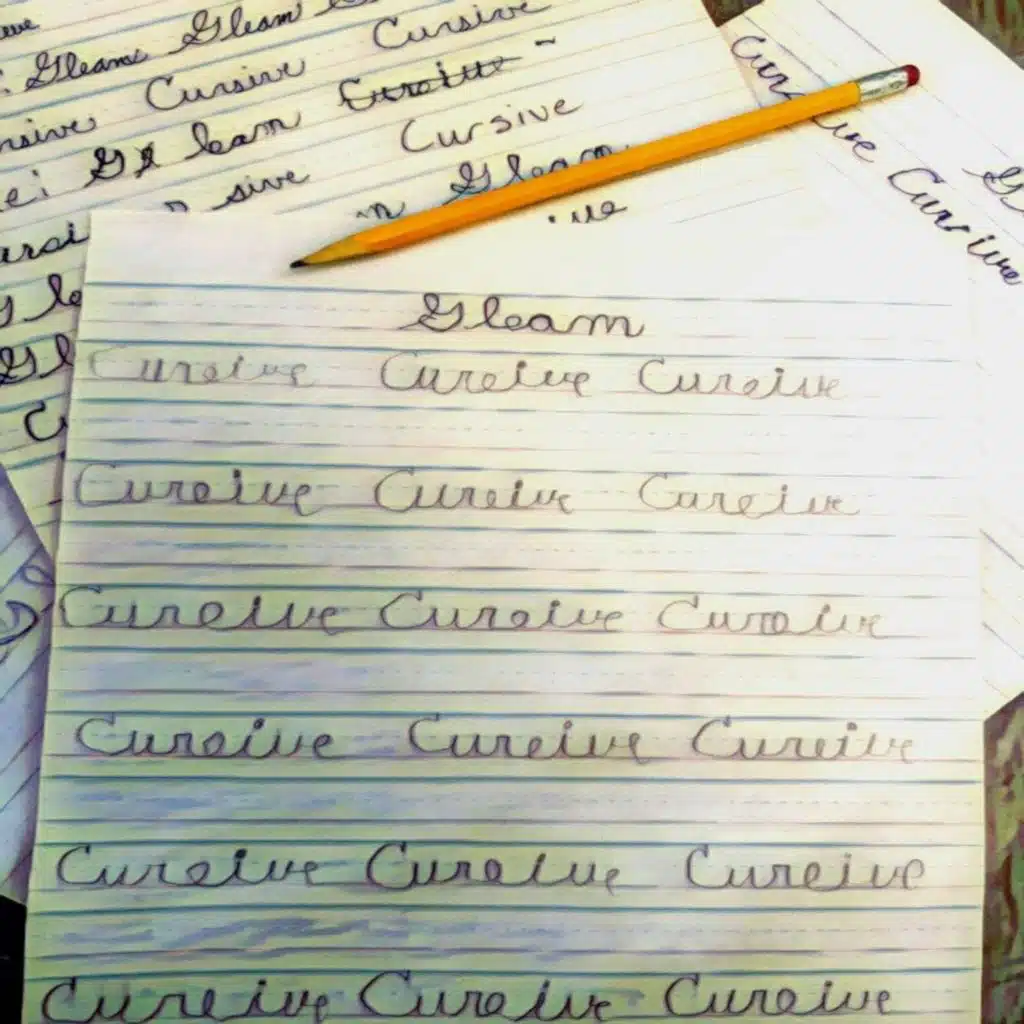 Gleam Gleam
Cursive Cursive
Gl leam Cursive
sive Cursive
Gleam
Cursive
Gleam
Cursive Cursive Cursive
Cursive Cursive Cursive
Cursive Cursive Cursive
Cursive Cursive Cursive
Cursive Cursive Cursive
Cursive Cursive Cursive